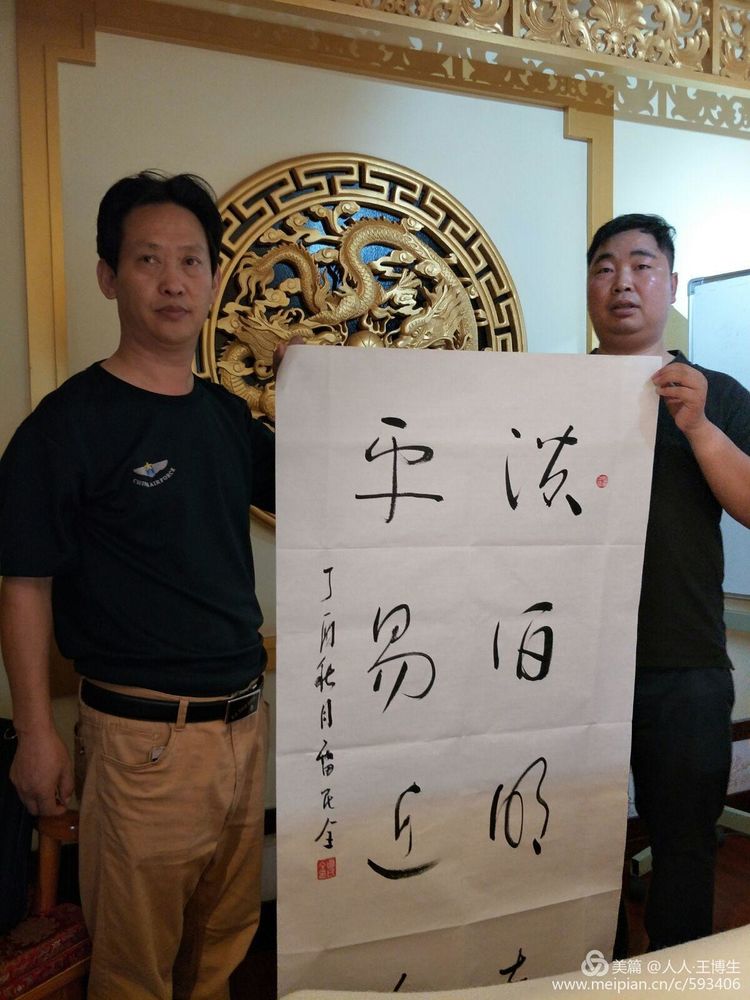 淡泊明
平易近
丁酉秋月
CHINA AIR FORCE
美篇 @人人·王博生
www.meipian.cn/c/593406